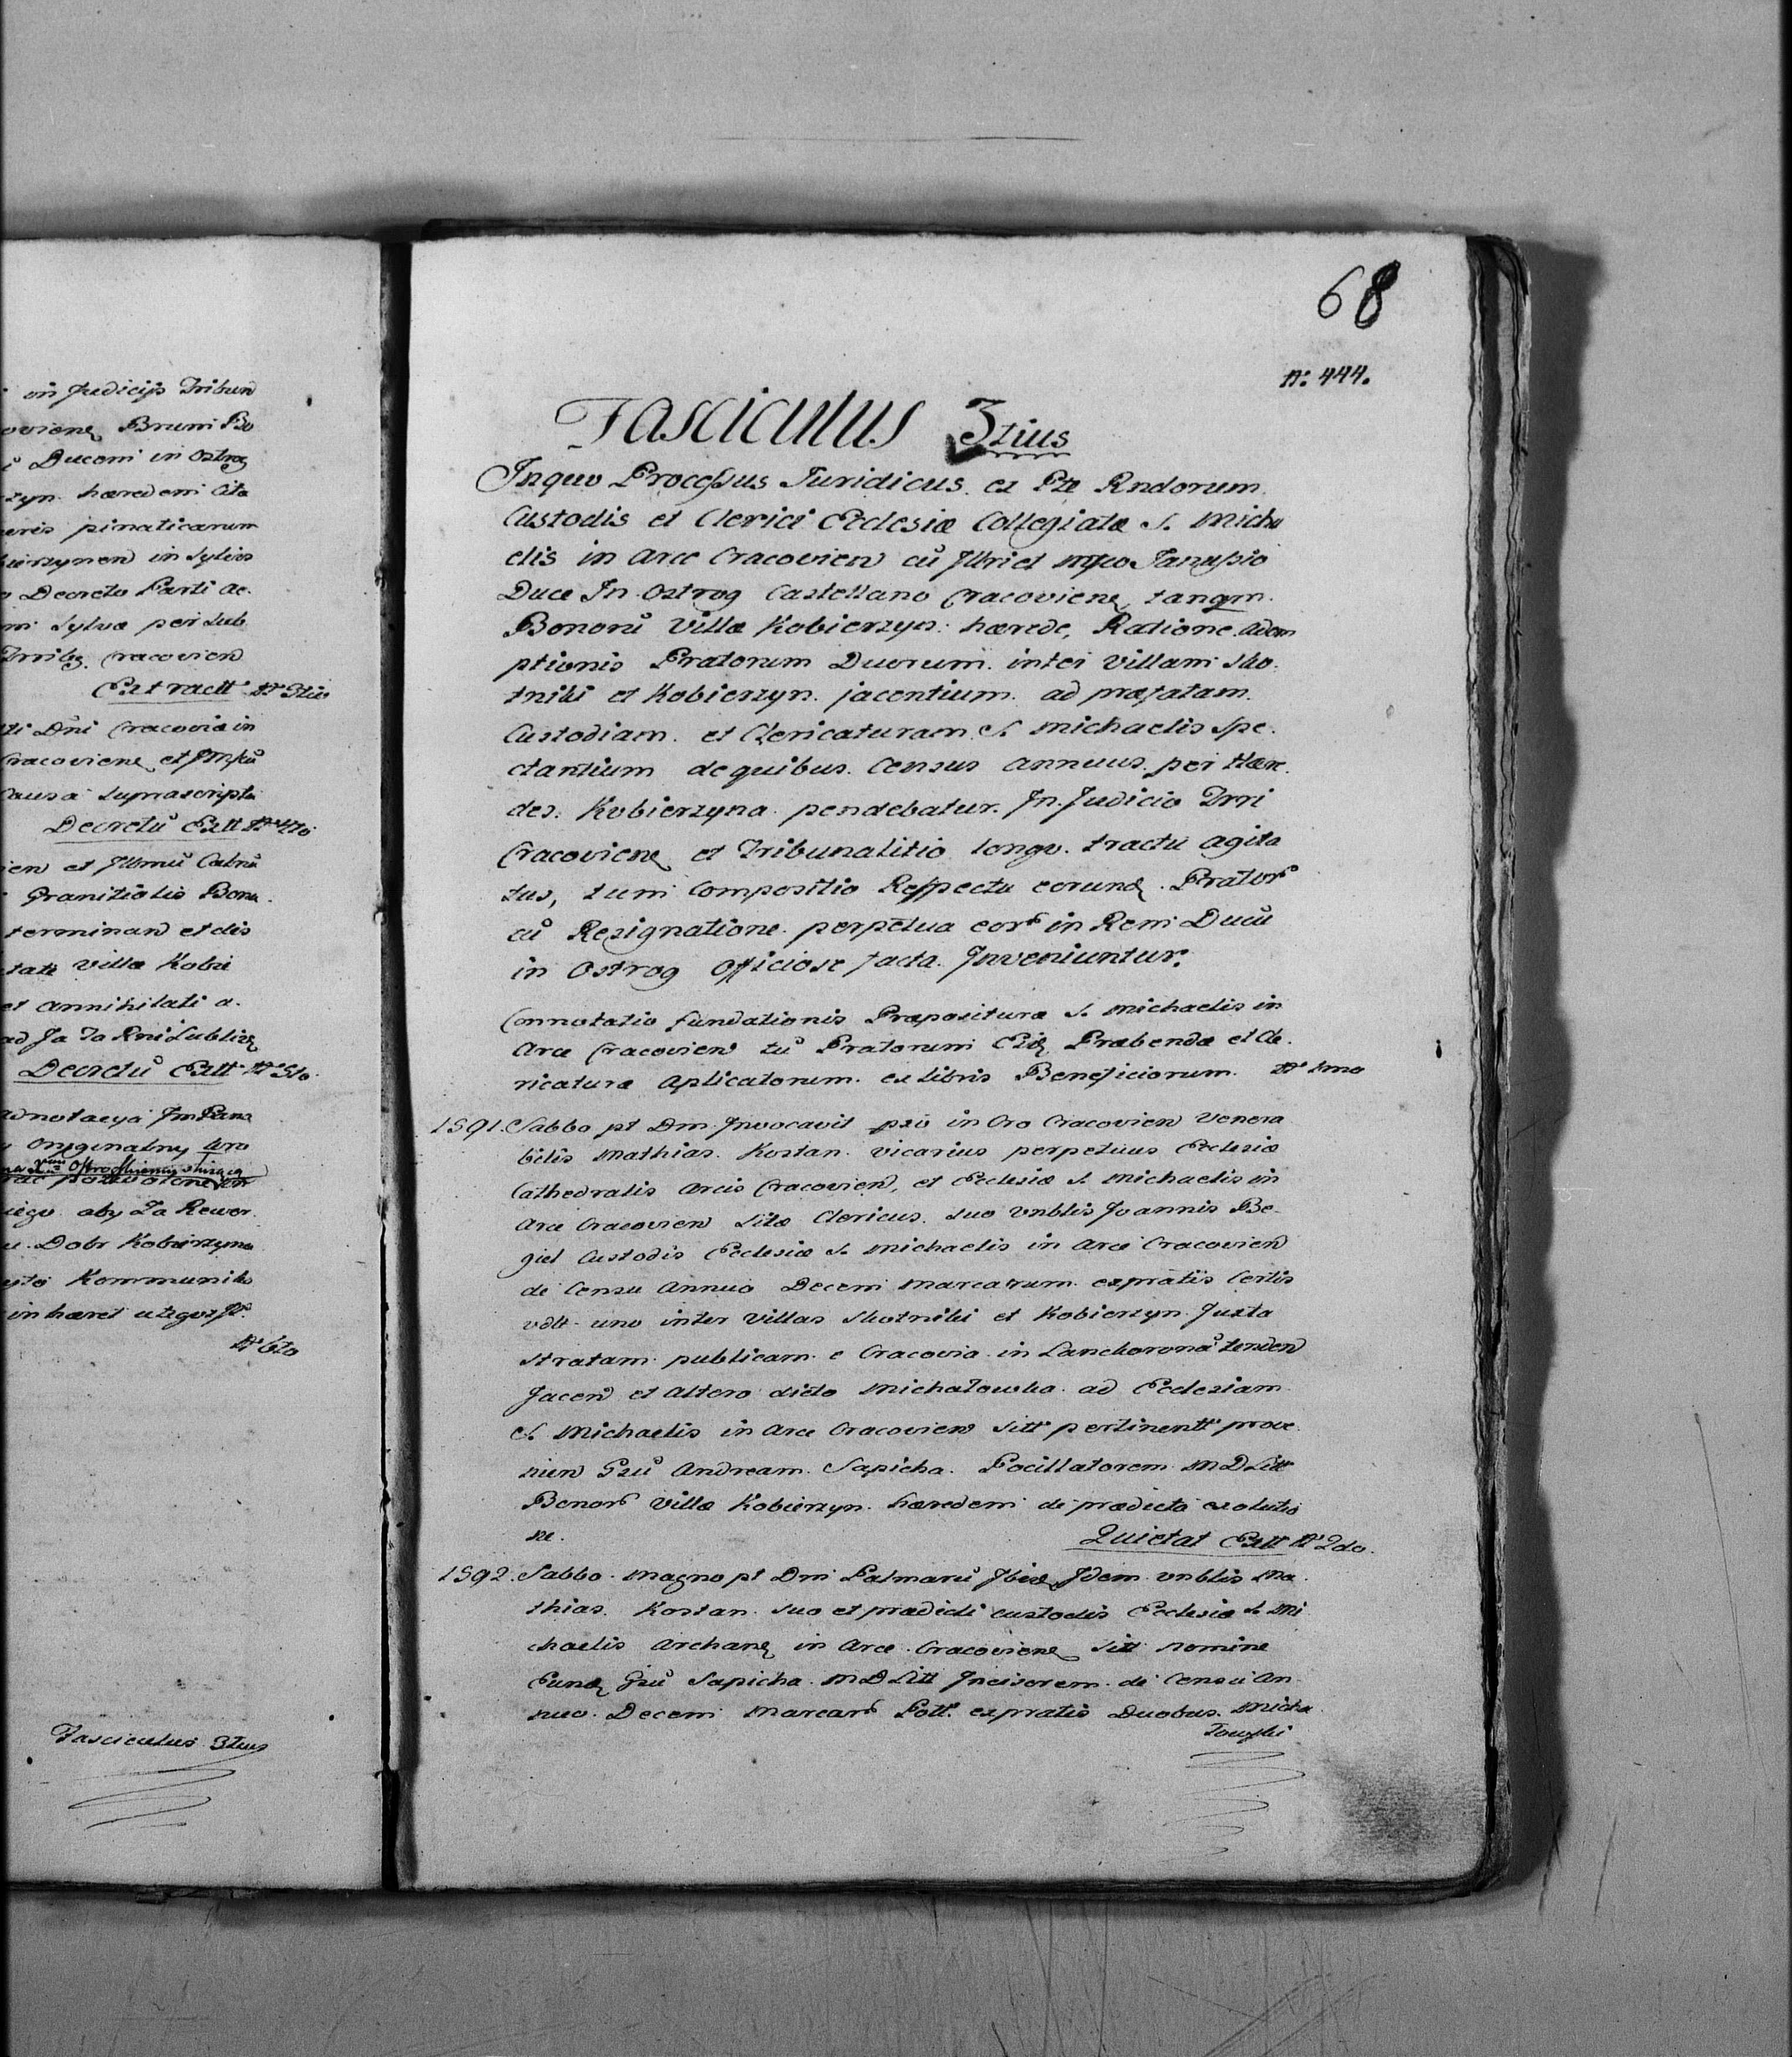 in Judicijs Tribun
Bruni Bo
Ducem in Ostrog
hæredem Cita
pinaticarum
in Sylvis
Decreto Parti ac.
Sylvæ per sub
Cracovien
Extractt Nº 3tio
Dni Cracoviæ in
Cracoviene et
Causa Suprascripta
Decretū Extt Nº 4to
ien et Illmū Cabnū
Granitialis Bona.
terminan et dis
tatt Villæ Kobie
et annihilati a.
Decretū Extt Nº 5to.
adnotacya Jm Pana
Oryginalny
iego aby Za Rewer.
Dobr Kobierzyna
Kommunik
inhæret
Nº 6to
Fasciculus 3tius
68
Nº 444.
Fasciculus 3tius
Inquo Processus Juridicus ex Pte Rndorum
Custodis et Clerici Ecclesiæ Collegiatæ S. Micha
elis in Arce Cracovien cū Illri et Mfco Janussio
Duce In Ostrog Castellano Cracoviene tanqm.
Bonorū Villæ Kobierzyn: hærede, Ratione adem
ptionis Pratorum Duorum inter Villam Sko.
tniki et Kobierzyn. jacentium ad præfatam
Custodiam et Clericaturam S. Michaelis Spe.
ctantium dequibus Census annuus per Hære.
des. Kobierzyna pendebatur. In Judicio Trri
Cracoviene et Tribunalitio longo tractu agita
tus, tum Compositio Respectu eorund. Prator
cū Resignatione perpetua eor in Rem Ducū
in Ostrog Officiose facta Inveniuntur.
Connotatio fundationis Præposituræ S. Michaelis in
Arce Cracovien tū Pratorum Eid Præbendæ et Cle.
ricaturæ aplicatorum ex Libris Beneficiorum. Nº 1mo
1591. Sabbo pt Dm Invocavit pxo in Cro Cracovien Venera
bilis Mathias Kostan. vicarius perpetuus Ecclesiæ
Cathedralis Arcis Cracovien, et Ecclesiæ S. Michaelis in
Arce Cracovien Sitæ Clericus. suo Vnblis Joannis Be.
giel Custodis Ecclesiæ S. Michaelis in Arce Cracovien
de Censu Annuo Decem Marcarum expratis Certis
vdtt uno inter Villas Skotniki et Kobierzyn Juxta
stratam publicam e Cracovia in Lanckoronā tenden
Jacen et altero dicto Michałowska ad Ecclesiam
S. Michaelis in Arce Cracovien Sitt pertinentt prove
nien Gsū Andream Sapieha. Pocillatorem M D Litt
Bonor Villæ Kobierzyn. hæredem de prædicta exolutio
ne. Quietat Extt Nº 2do.
1592. Sabbo Magno pt Dm Palmarū Ibid Idem vnblis Ma
thias. Kostan suo et prædicti custodis Ecclesiæ S. Mi
chaelis Archang in Arce Cracoviene Sitt nomine
Eund Gsū Sapieha M D Litt Incisorem de Censu An
nuo. Decem Marcar Poll. expratis Duobus. Micha
łowski